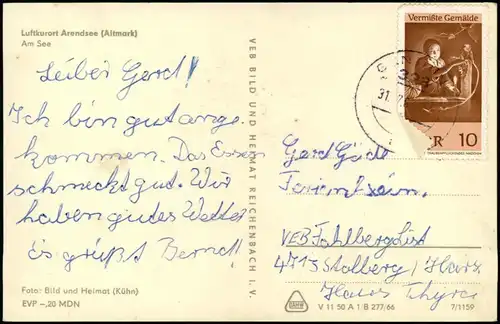 Luftkurort Arendsee (Altmark)
Am See
Lieber Gerd!
Ich bin gut ange
kommen. Das Essen
schmeckt gut. Wir
haben gutes Wetter
Es grüßt Bernd
Foto: Bild und Heimat (Kühn)
EVP –,20 MDN
VEB BILD UND HEIMAT REICHENBACH I. V.
Vermißte Gemälde
R 10
31.
Gerd Gäde
Ferienheim
VEB Fahlberg List
4713 Stolberg / Harz
Haus Thyra
V 11 50 A 1 B 277/66
7/1159